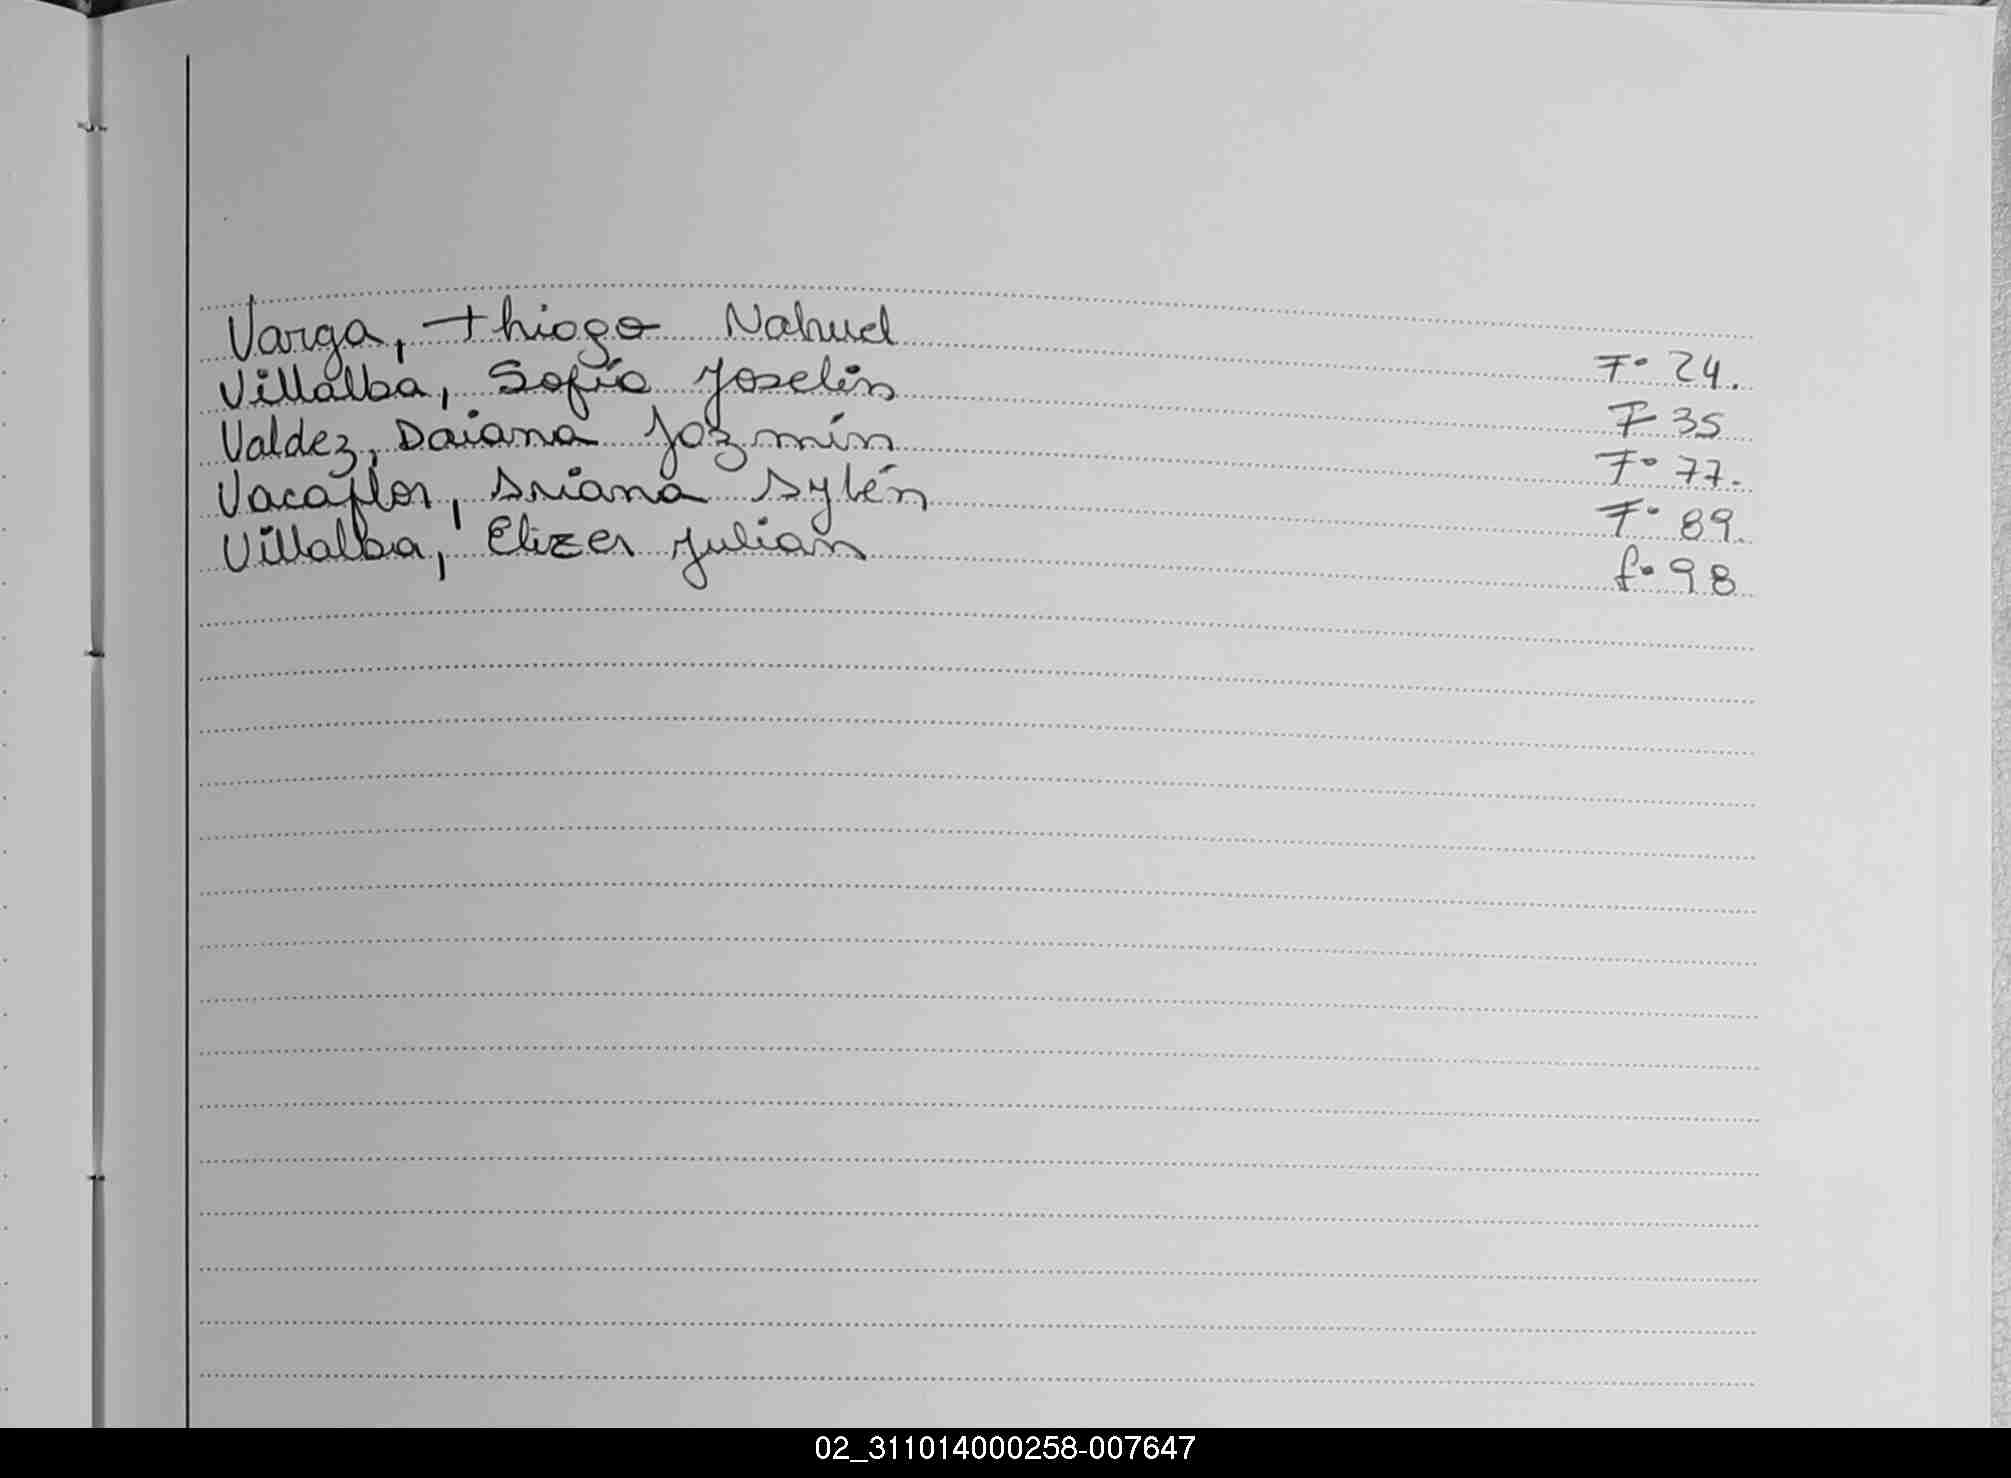 Varga, Thiogo Nahuel F° 24.
Villalba, Sofía Joselin F 35
Valdez, Daiana Jazmín F° 77.
Vacaflor, Ariana Aylén F° 89.
Villalba, Elizer Julian f° 98
02_311014000258-007647